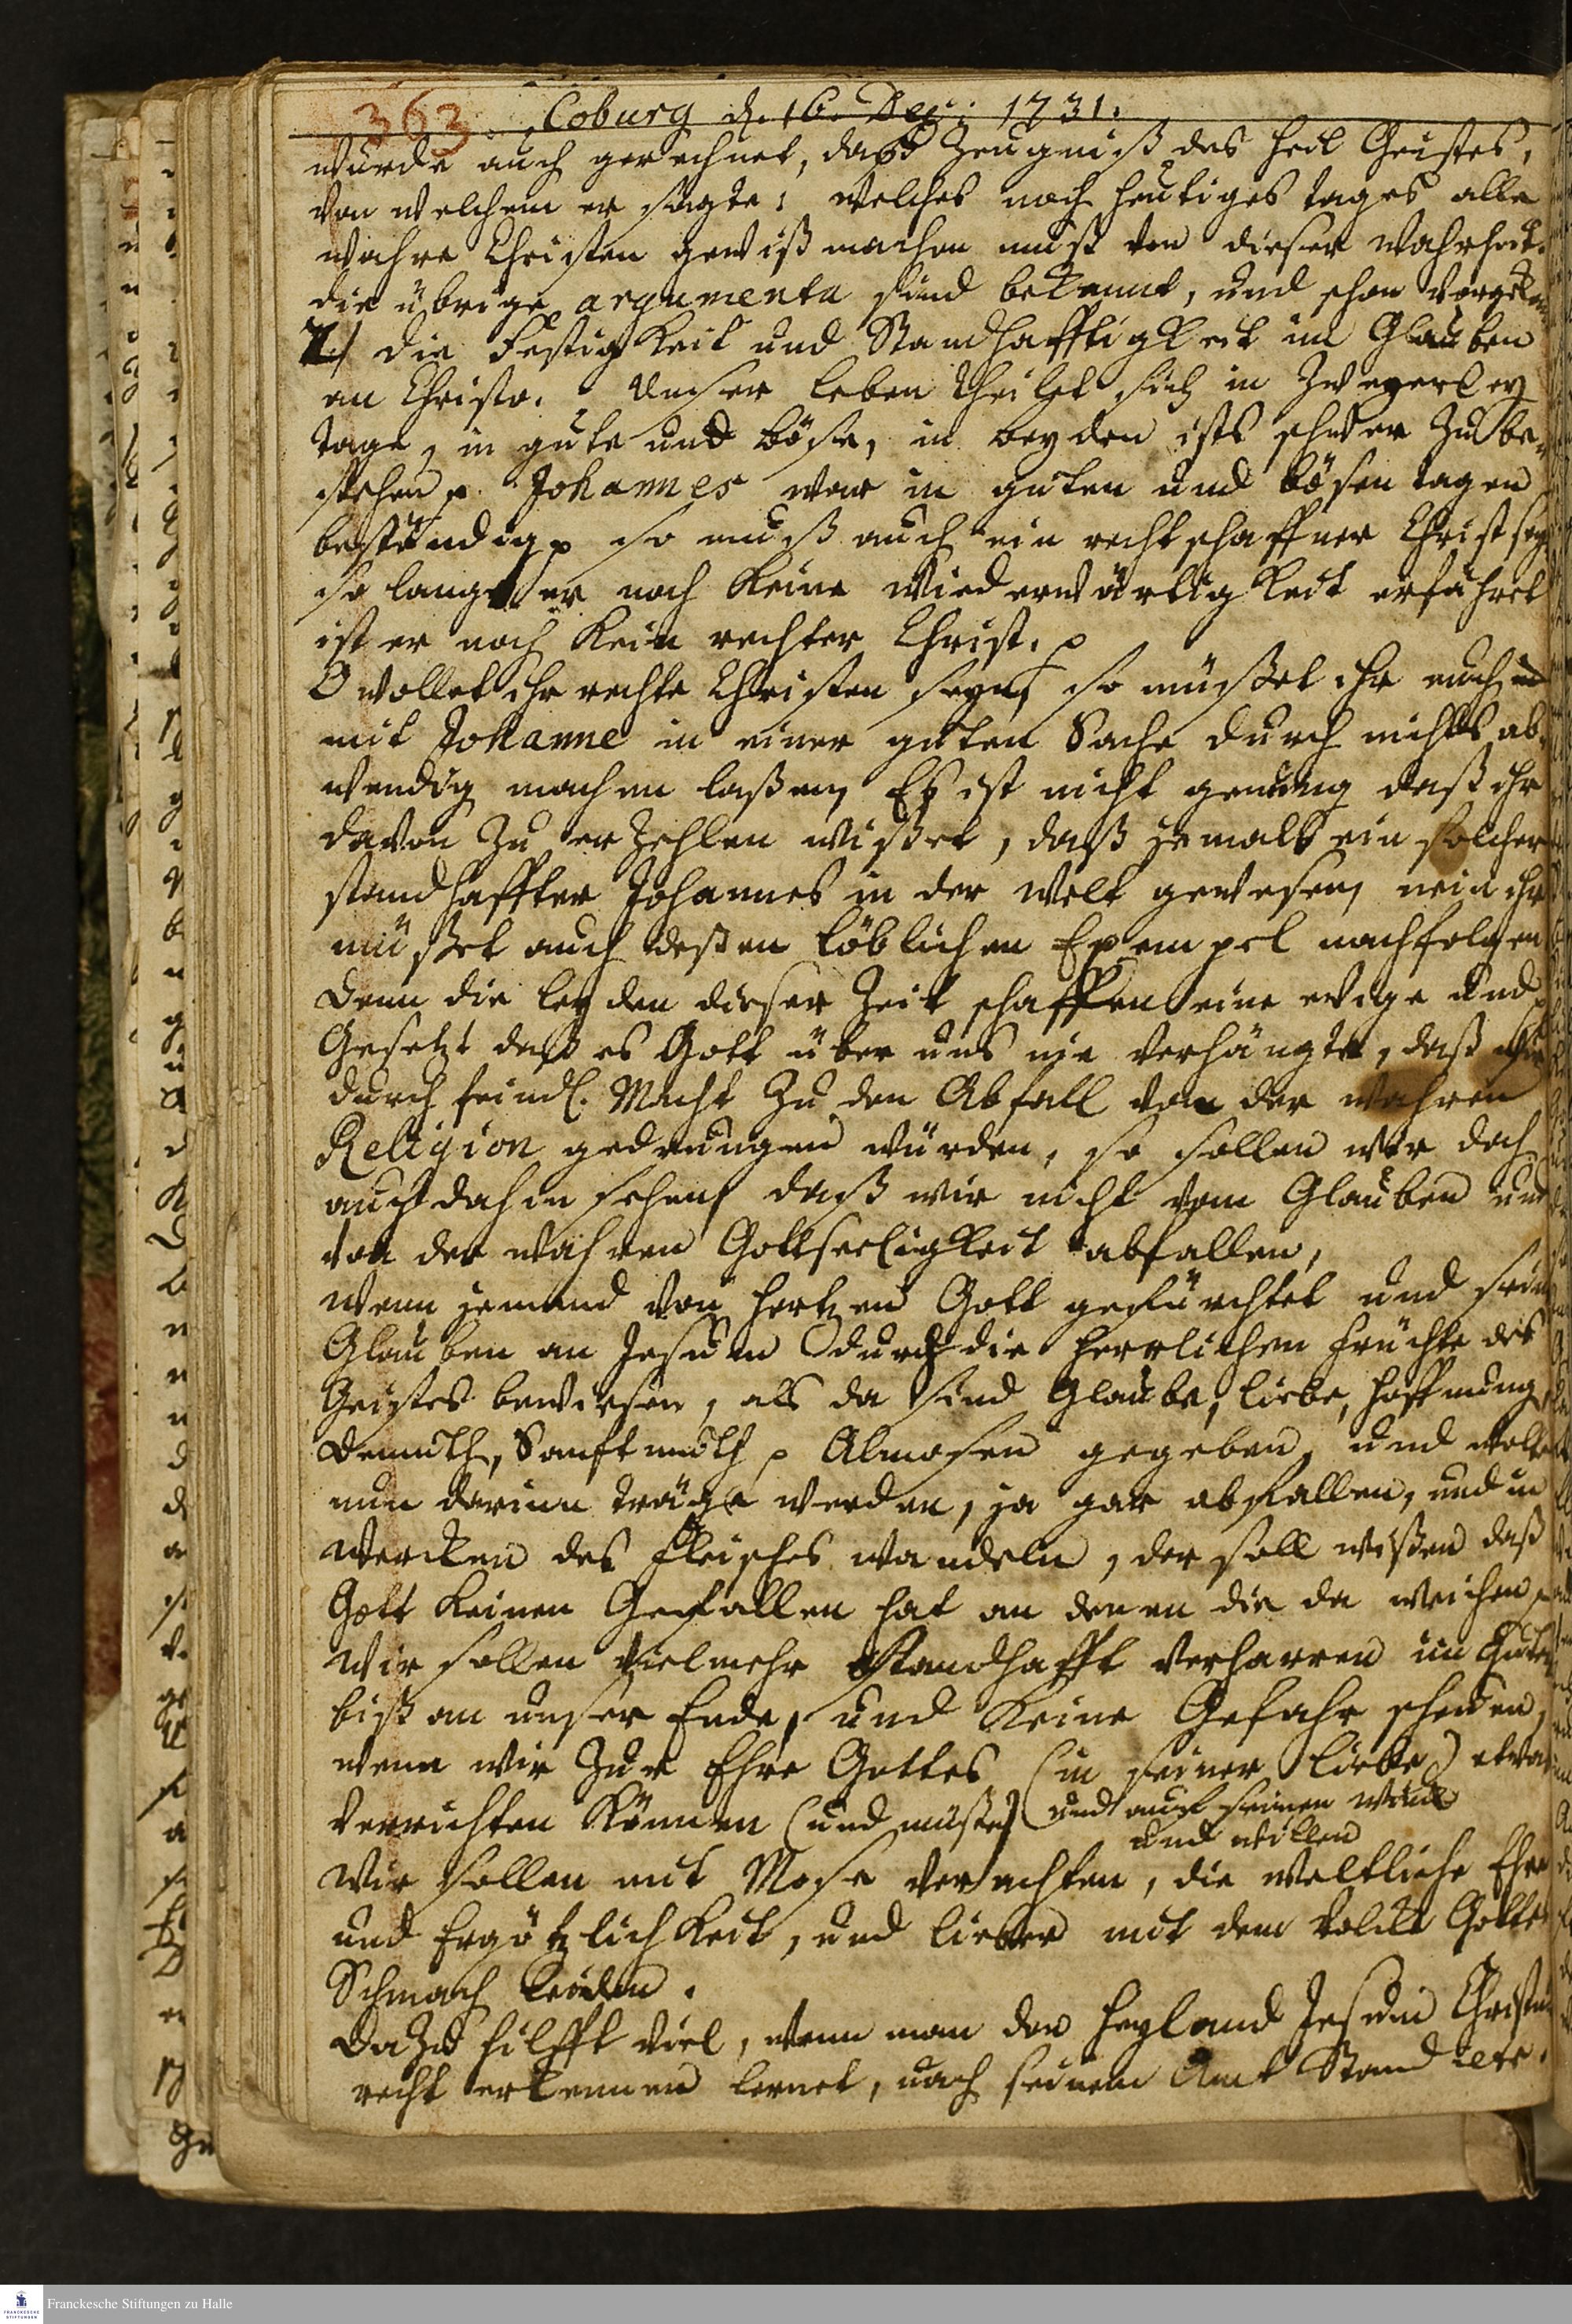 363. Coburg d. 16. Dec: 1731.
wurde auch gerechnet, daß Zeugniß des heil Geistes,
von welchem er sagte: welches noch heutiges tages alle
wahre Christen gewiß machen muß von dieser wahrheit.
die übrige argumenta sind bekannt, und schon
2) die Festigkeit und Standhafftigkeit im Glauben
an Christo. Unser leben theilet sich in zweyerley
tage, in gute und böse, in beyden ists schwer zu be-
stehen p. Johannes war in guten und bösen tagen
beständig p so muß auch ein rechtschaffner Christ seyn
so lange er noch keine wiederwärtigkeit erfähret
ist er noch kein rechter Christ. p
O wollet ihr rechte Christen seyn, so müßet ihr euch
mit Johanne in einer guten Sache durch nichts ab-
wendig machen laßen, Es ist nicht genung daß ihr
davon zu erzehlen wißet, daß jemals ein solcher
standhaffter Johannes in der welt gewesen, nein ihr
müßet auch deßen löblichen Exempel nachfolgen
Denn die leyden dieser Zeit schaffen eine ewige und p
Gesetzt daß es Gott über uns nie verhängte, daß wir
durch feindl. Macht zu den Abfall von der wahren
Religion gedrungen würden, so sollen wir doch
auch dahin sehen, daß wir nicht vom Glauben und
von der wahren Gottseeligkeit abfallen,
wenn jemand von hertzen Gott gefürchtet und sein
Glauben an Jesum durch die herrlichen Früchte des
Geistes bewiesen, als da sind Glaube, liebe, hoffnung,
Demuth, Sanftmuth p Almosen gegeben, und wolte
nun darinn träge werden, ja gar abfallen, und in
wercken des Fleisches wandeln, der soll wißen daß
Gott keinen Gefallen hat an denen die da weichen,
Wir sollen vielmehr Standhafft verharren im Guten
biß an unser Ende, und keine Gefahr scheuen,
wenn wir zur Ehre Gottes (in seiner liebe) etwas
verrichten können (und müßen) und auf seinen winck
und willen
Wir sollen mit Mose verachten, die weltliche Ehre
und Ergötzlichkeit, und lieber mit dem volck Gottes
Schmach leiden.
Dazu hilfft viel, wenn man den Heyland Jesum Christum
recht erkennen lernet, nach seinem Amt Stand
Franckesche Stiftungen zu Halle